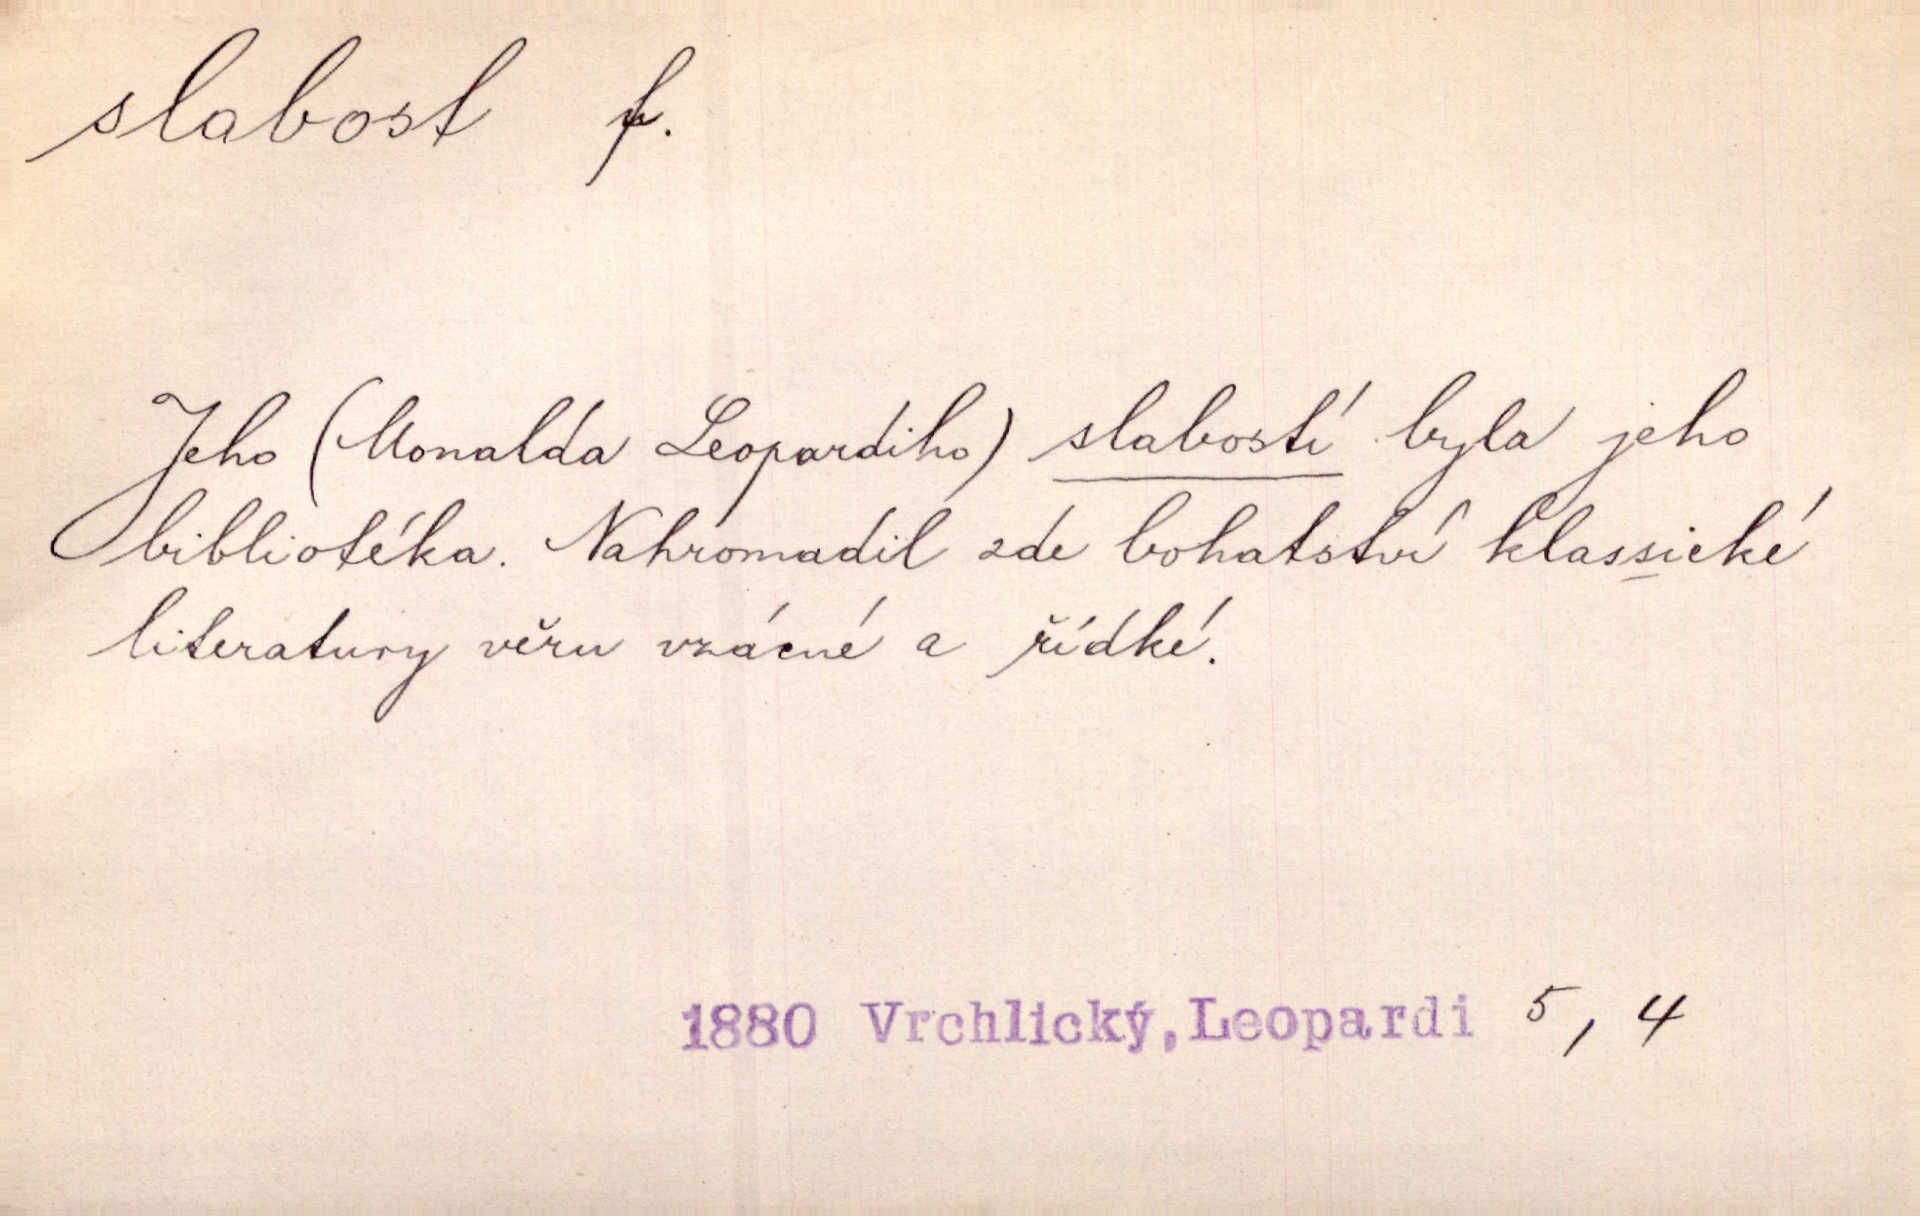 slabost f.
Jeho (Monalda Leopardiho) slabostí byla jeho
bibliotéka. Nahromadil zde bohatství klassické
literatury věru vzácné a řídké.
1880 Vrchlický, Leopardi 5, 4